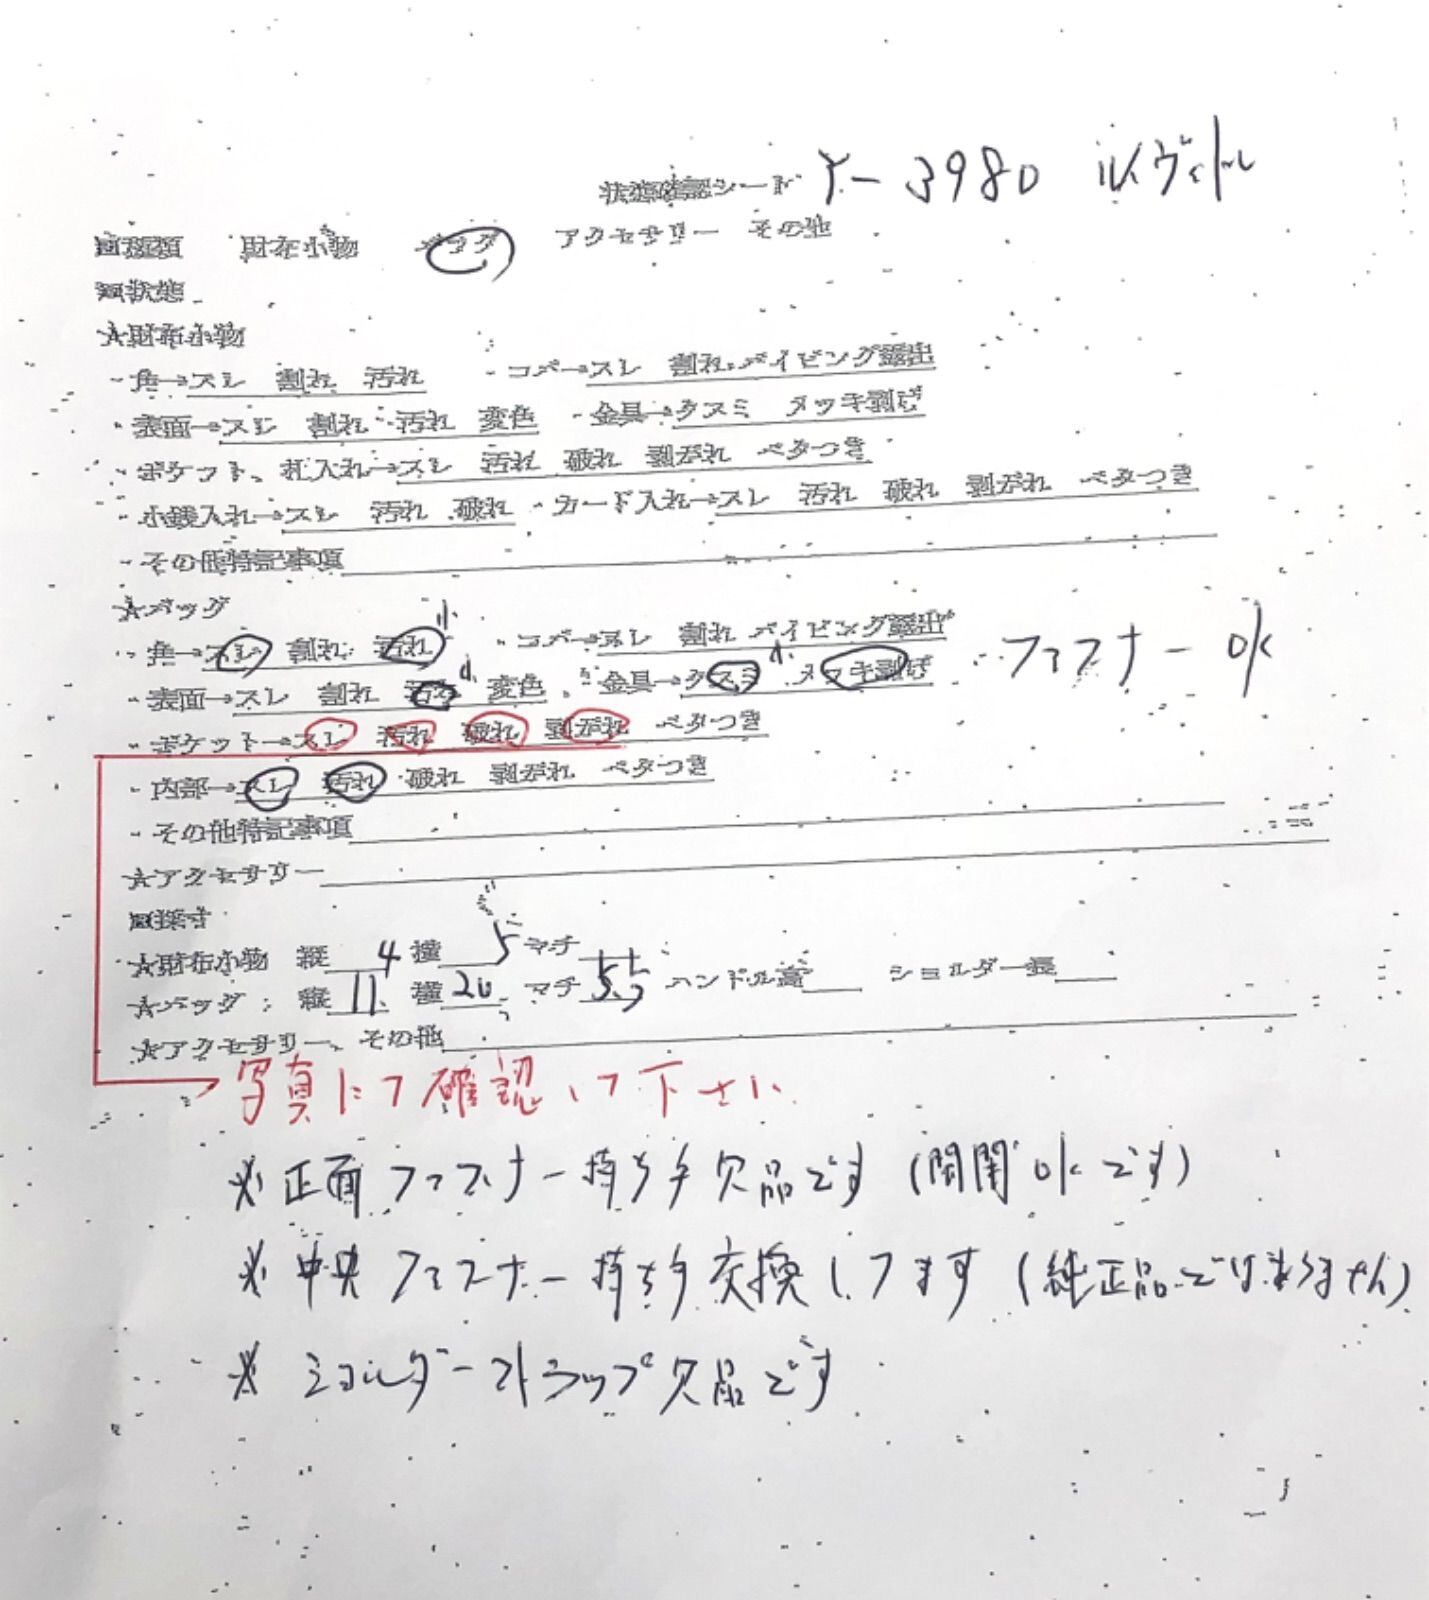 状態確認シート Y-3980 ルイヴィトン
■種類 財布小物 バッグ アクセサリー その他
■状態
★財布小物
・角→スレ 割れ 汚れ ・コバ→スレ 割れ パイピング露出
・表面→スレ 割れ 汚れ 変色 ・金具→クスミ メッキ剥げ
・ポケット、札入れ→スレ 汚れ 破れ 剥がれ ベタつき
・小銭入れ→スレ 汚れ 破れ ・カード入れ→スレ 汚れ 破れ 剥がれ ベタつき
・その他特記事項
★バッグ
・角→スレ 割れ 汚れ 小 ・コバ→スレ 割れ パイピング露出 ファスナー OK
・表面→スレ 割れ 汚れ 小 変色 ・金具→クスミ 小 メッキ剥げ
・ポケット→スレ 汚れ 破れ 剥がれ ベタつき
・内部→スレ 汚れ 破れ 剥がれ ベタつき
・その他特記事項
★アクセサリー
■採寸
★財布小物 縦 4 横 5 マチ
★バッグ 縦 11 横 20 マチ 5.5 ハンドル高 ショルダー長
★アクセサリー、その他
写真にて確認して下さい
※ 正面ファスナー持ち手欠品です (開閉OKです)
※ 中央ファスナー持ち手交換してます (純正品ではありません)
※ ショルダーストラップ欠品です